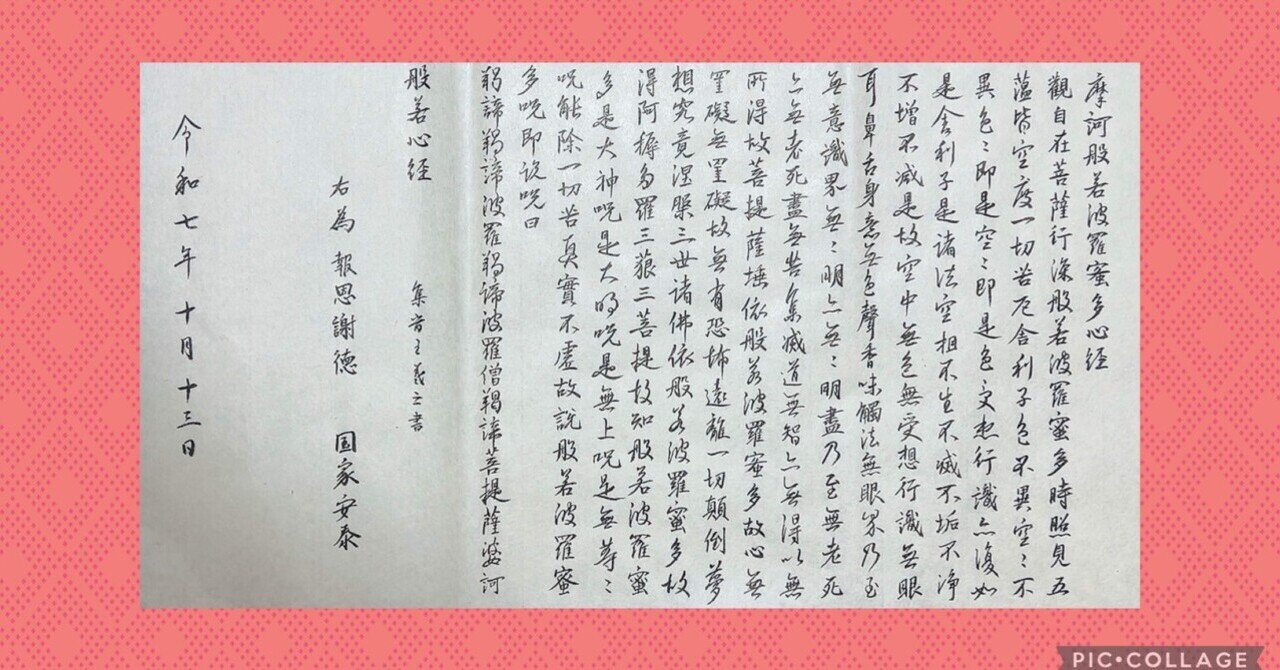 摩訶般若波羅蜜多心経
觀自在菩薩行深般若波羅蜜多時照見五
蘊皆空度一切苦厄舍利子色不異空〻不
異色〻即是空〻即是色受想行識亦復如
是舍利子是諸法空相不生不滅不垢不浄
不增不減是故空中無色無受想行識無眼
耳鼻舌身意無色聲香味觸法無眼界乃至
無意識界無〻明亦無〻明盡乃至無老死
亦無老死盡無苦集滅道無智亦無得以無
所得故菩提薩埵依般若波羅蜜多故心無
罣礙無罣礙故無有恐怖遠離一切顛倒夢
想究竟涅槃三世諸佛依般若波羅蜜多故
得阿耨多羅三藐三菩提故知般若波羅蜜
多是大神呪是大明呪是無上呪是無等〻
呪能除一切苦真實不虚故説般若波羅蜜
多呪即説呪曰
羯諦羯諦波羅羯諦波羅僧羯諦菩提薩婆訶
般若心経
集字王羲之書
右為 報恩謝德 国家安泰
令和七年十月十三日
PIC•COLLAGE